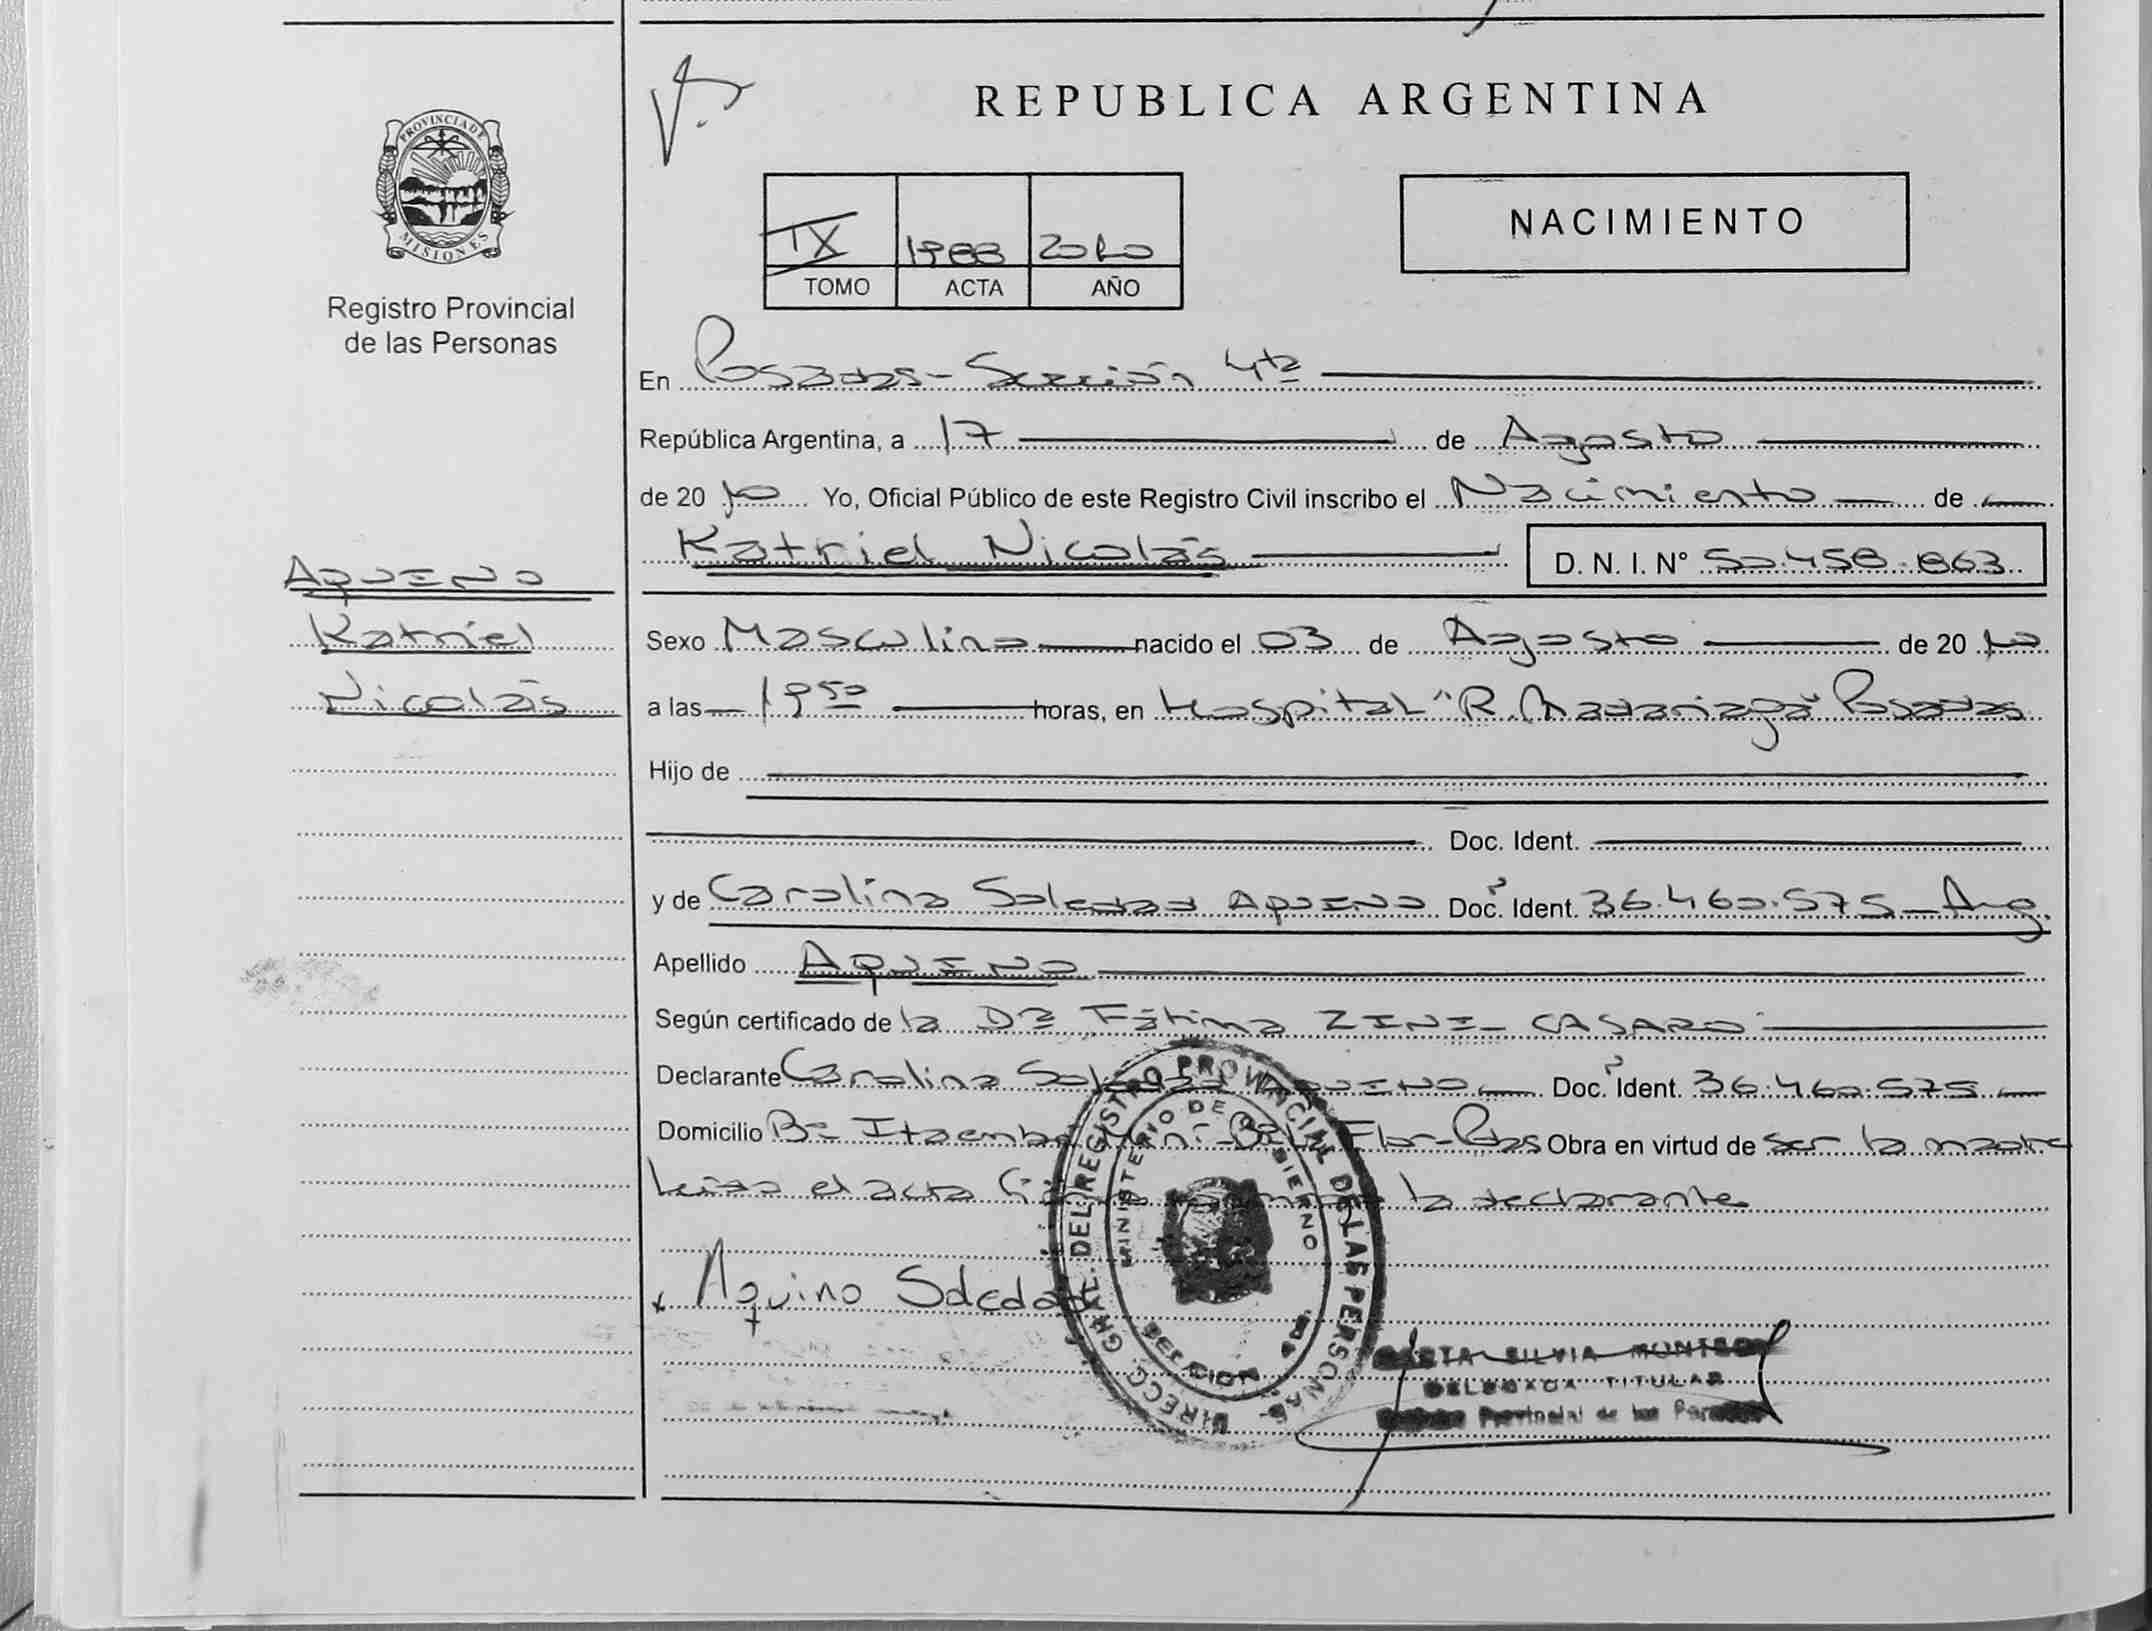 PROVINCIA DE
MISIONES
Registro Provincial
de las Personas
AQUINO
Katriel
Nicolás
REPUBLICA ARGENTINA
NACIMIENTO
IX 1988 2010
TOMO ACTA AÑO
En Posadas - Sección 4ta
República Argentina, a 17 de Agosto
de 20 10 Yo, Oficial Público de este Registro Civil inscribo el Nacimiento de
Katriel Nicolás D. N. I. N° 50.458.863
Sexo Masculino nacido el 03 de Agosto de 20 10
a las 19 50 horas, en Hospital "R. Madariaga" Posadas
Hijo de
Doc. Ident.
y de Carolina Soledad AQUINO Doc. Ident. 36.460.575 - Arg.
Apellido AQUINO
Según certificado de la Dra Fátima ZINI CASARO
Declarante Carolina Soledad AQUINO Doc. Ident. 36.460.575
Domicilio Bº Itaembé Miní - Flor - Pdas Obra en virtud de ser la madre
Leída el acta la declarante
Aquino Soledad
DIRECC. GRAL. DEL REGISTRO PROVINCIAL DE LAS PERSONAS
MINISTERIO DE GOBIERNO
SILVIA
DELEGADA TITULAR
Provincial de las Personas